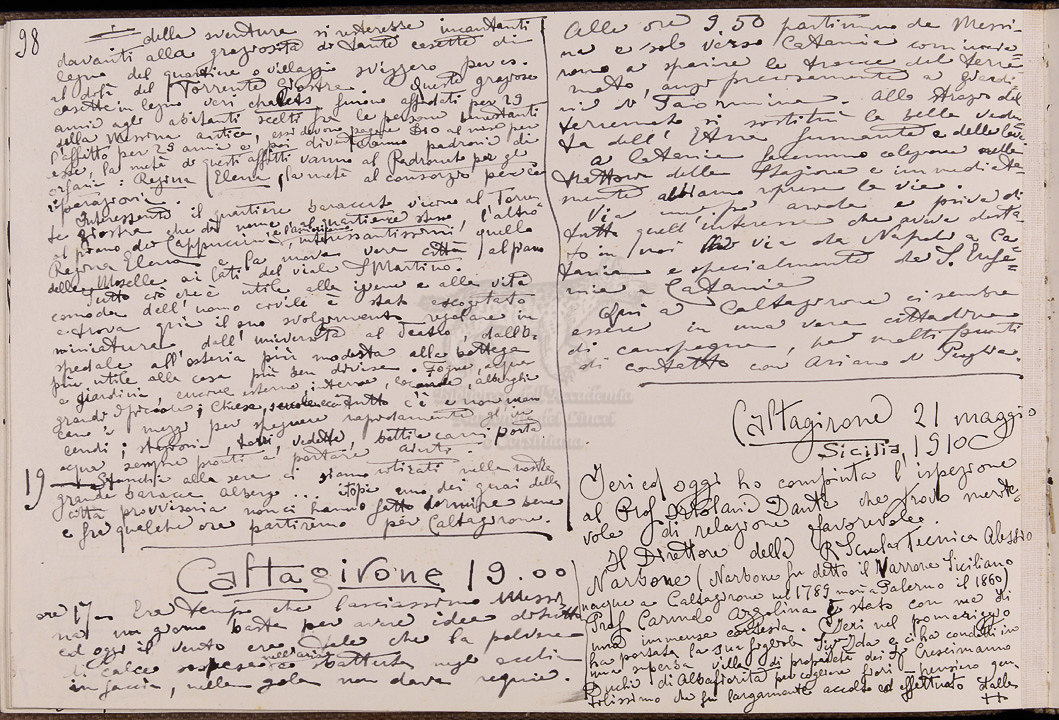 98
della sventura si interesse incantanti
davanti alla graziosità di tante casette di
legno del quartiere o villaggio svizzero per es.
al di là del Torrente Giostra. Queste graziose
casette in legno veri chalets furono affidati per 29
anni agli abitanti scelti fra le persone benestanti
della Messina antica, essi devono pagare 310 al mese per
l'affitto per 29 anni e poi diventano padroni di
esse, la metà di questi affitti vanno al Padronato per gli
orfani: Regina Elena, la metà al consorzio per le
riparazioni.
Interessante il quartiere baraccato vicino al Torren
te Giostra che dà nome al quartiere stesso
al piano dei Cappuccini interessantissimi, l'altro
Regina Elena e la nuova vera città, quello
delle Moselle ai lati del viale S. Martino. al piano
Tutto ciò che è utile alla igiene e alla vita
comoda dell'uomo civile è stato escogitato
e trova qui il suo svolgimento regolare in
miniatura dall'università al Teatro, dall'o
spedale all'osteria più modesta alla bottega
più utile alla casa più ben divisa. Fogne, acqua
a giardini, cucine esterne, interne, locande, alberghi
grandi e piccole; Chiese, scuole con tutto c'è e non man
cano i mezzi per spegnere rapidamente gl' in
cendi; stazioni, torri vedette, botti e carri porta
acqua sempre pronti a portare aiuto.
19 Stanchi alla sera ci siamo ritirati nella nostra
grande baracca albergo... i topi uno dei guai della
città provvisoria non ci hanno fatto dormire bene
e fra qualche ora partiremo per Caltagirone.
Caltagirone 19.00
ore 17 Era tempo che lasciassimo Messi
na; un giorno basta per avere idea distinta
ed oggi il vento era tale che la polvere
di calce sospesa nell'aria e sbattuta negli occhi
in faccia, nella gola non dava requie.
Alle ore 9.50 partimmo da Messi
na e solo verso Catania comincia
rono a sparire le tracce del terre
moto, anzi precisamente a Giardi
ni di Taormina. Allo strazio del
terremoto si sostituì la bella vedu
ta dell'Etna fumante e delle lave
a Catania facemmo colazione nella
trattoria della Stazione e immediata
mente abbiamo ripreso la via.
Via lunga arida e priva di
tutto quell'interesse che aveva desta
to in noi la via da Napoli a Ca
tania e specialmente da S. Eufe
mia a Catania
Qui a Caltagirone ci sembra
essere in una vera cittadina
di campagna, ha molti punti
di contatto con Ariano di Puglia.
Caltagirone 21 maggio
Sicilia, 1910
Ieri ed oggi ho compiuta l'ispezione
al Prof Ortolani Dante che trovo merite
vole di relazione favorevole.
Il Direttore della R Scuola Tecnica Alessio
Narbone (Narbone fu detto il Varrone Siciliano
nacque a Caltagirone nel 1789 morì a Palermo il 1860)
Prof. Carmelo Azzolina è stato con me di
una immensa cortesia. Ieri nel pomeriggio
ha portata la sua figliola Sig. Ida e ci ha condotti in
una superba villa di proprietà dei Sr Crescimanno
Duchi di Albafiorita per cogliere fiori pensiero gen
tilissimo che fu largamente accolto ed effettuato dalle